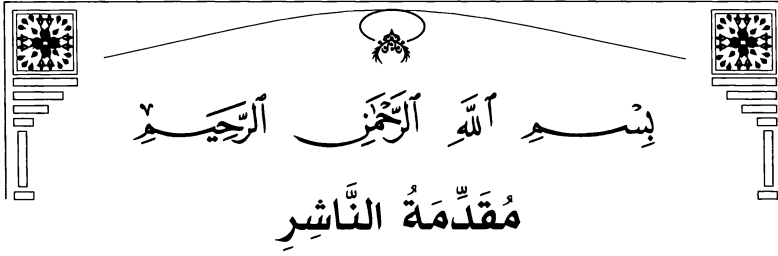 بِسْمِ ٱللَّهِ ٱلرَّحْمَٰنِ ٱلرَّحِيمِ
مُقَدِّمَةُ النَّاشِرِ